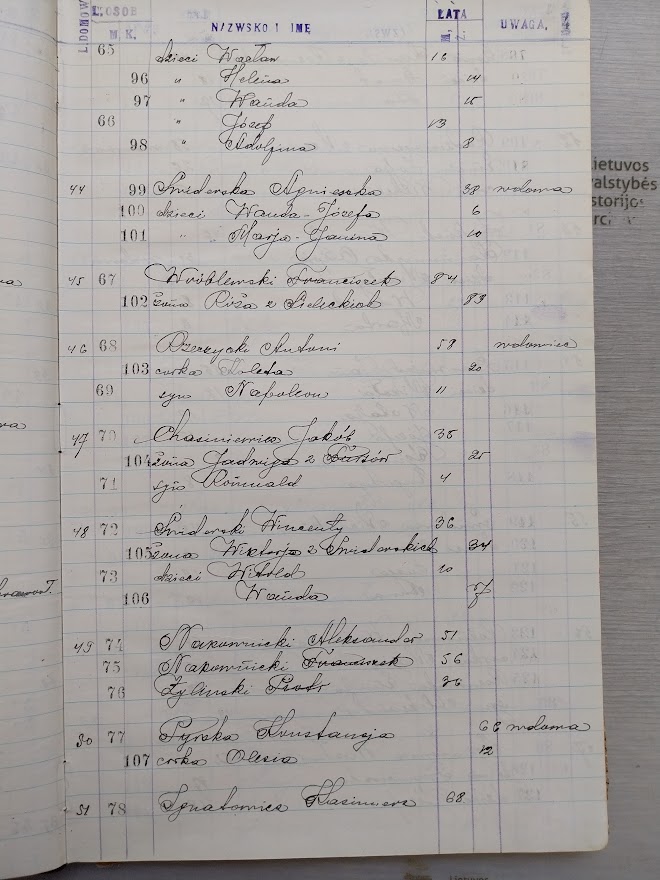 L. DOMÓW L. OSOB NAZWSKO I IMĘ LATA UWAGA.
M. K. M. Ż.
65 dzieci Wacław 16
96 " Helena 14
97 " Wanda 15
66 " Józef 13
98 " Adolfina 8
44 99 Świderska Agnieszka 38 wdowa
100 dzieci Wanda-Józefa 6
101 " Marja-Janina 10
45 67 Wróblewski Franciszek 84
102 żona Róża z Sieleckich 83
46 68 Rzerzycki Antoni 58 wdowiec
103 córka 20
69 syn Napoleon 11
47 70 Jakób 38
104 żona Jadwiga z 25
71 syn Romuald 4
48 72 Świderski Wincenty 36
105 żona Wiktorja z Świderskich 34
73 dzieci Witold 10
106 Wanda
49 74 Nakownicki Aleksander 51
75 Nakownicki Franciszek 56
76 Żyliński Piotr 36
50 77 Pyrska Konstancja 66 wdowa
107 córka Olesia 12
51 78 Ignatowicz Kazimierz 68
Lietuvos
valstybės
istorijos